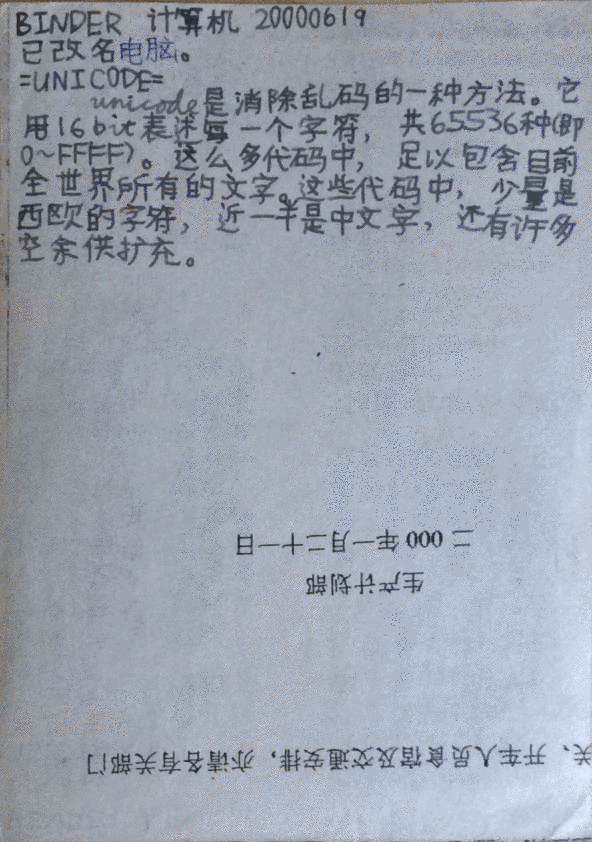 BINDER 计算机 20000619
已改名电脑。
=UNICODE=
unicode是消除乱码的一种方法。它
用16bit表述每一个字符，共65536种(即
0~FFFF)。这么多代码中，足以包含目前
全世界所有的文字。这些代码中，少量是
西欧的字符，近一半是中文字，还有许多
空余供扩充。
二000年一月二十一日
生产计划部
关、开车人员食宿及交通安排，亦请各有关部门